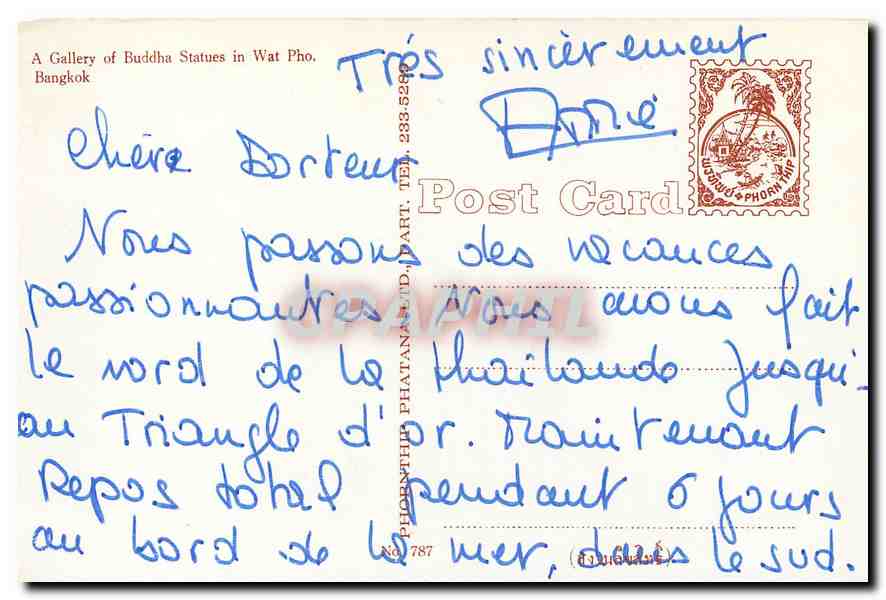 A Gallery of Buddha Statues in Wat Pho.
Bangkok
Très sincèrement
Chère Docteur
Post Card
พรทิพย์ PHORN THIP
Nous passons des vacances
passionnantes. Nous avons fait
le nord de la Thaïlande jusqu'-
au Triangle d'or. Maintenant
Repos total pendant 6 jours
au bord de la mer, dans le sud.
PHORNTHIP PHATANA LTD., PART. TEL. 233-5289
No. 787
(สงวนลิขสิทธิ์)
CPAPHIL